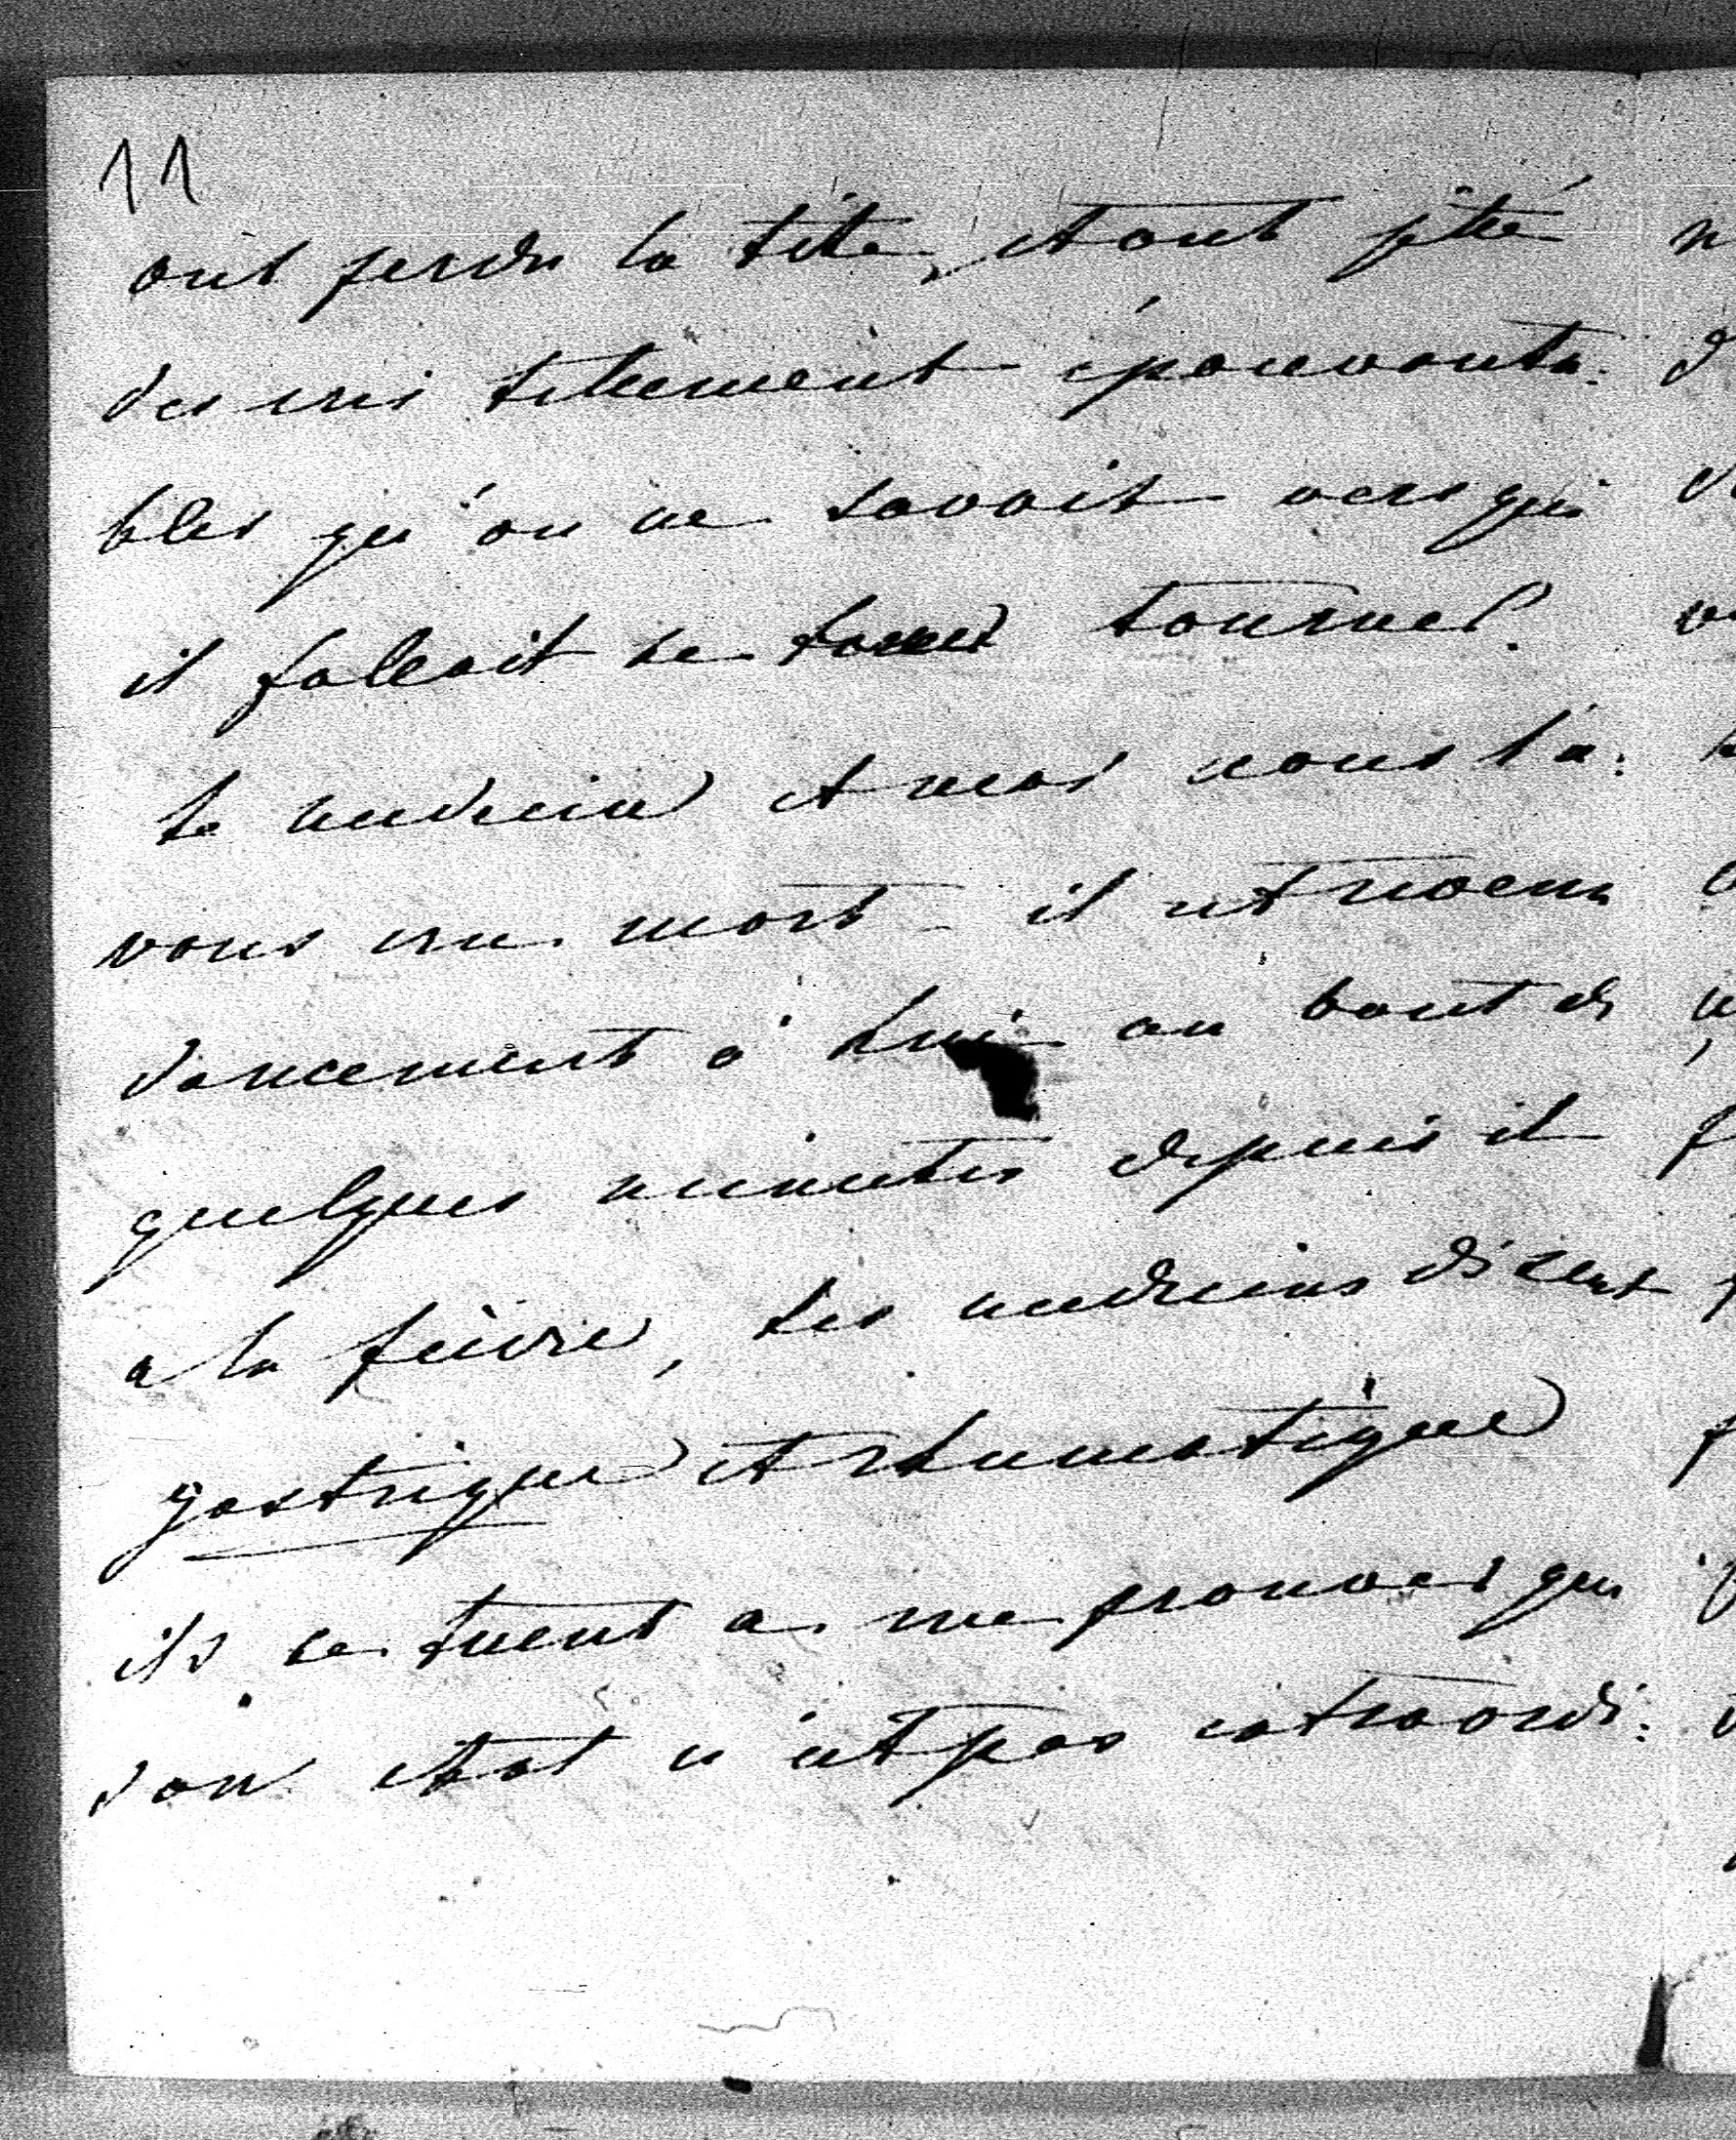 11
ont perdu la tête, et ont jetté
des cris tellement épouvanta:
bles qu'on ne savait vers qui
il fallait se tourner.
Le medecin et moi nous l'a:
vons cru mort – il est revenu
doucement à lui au bout de
quelques minutes depuis il
a la fièvre, les medecins disent
gastrique et rhumatique
ils se tuent a me prouver que
son etat n'est pas extraordi: